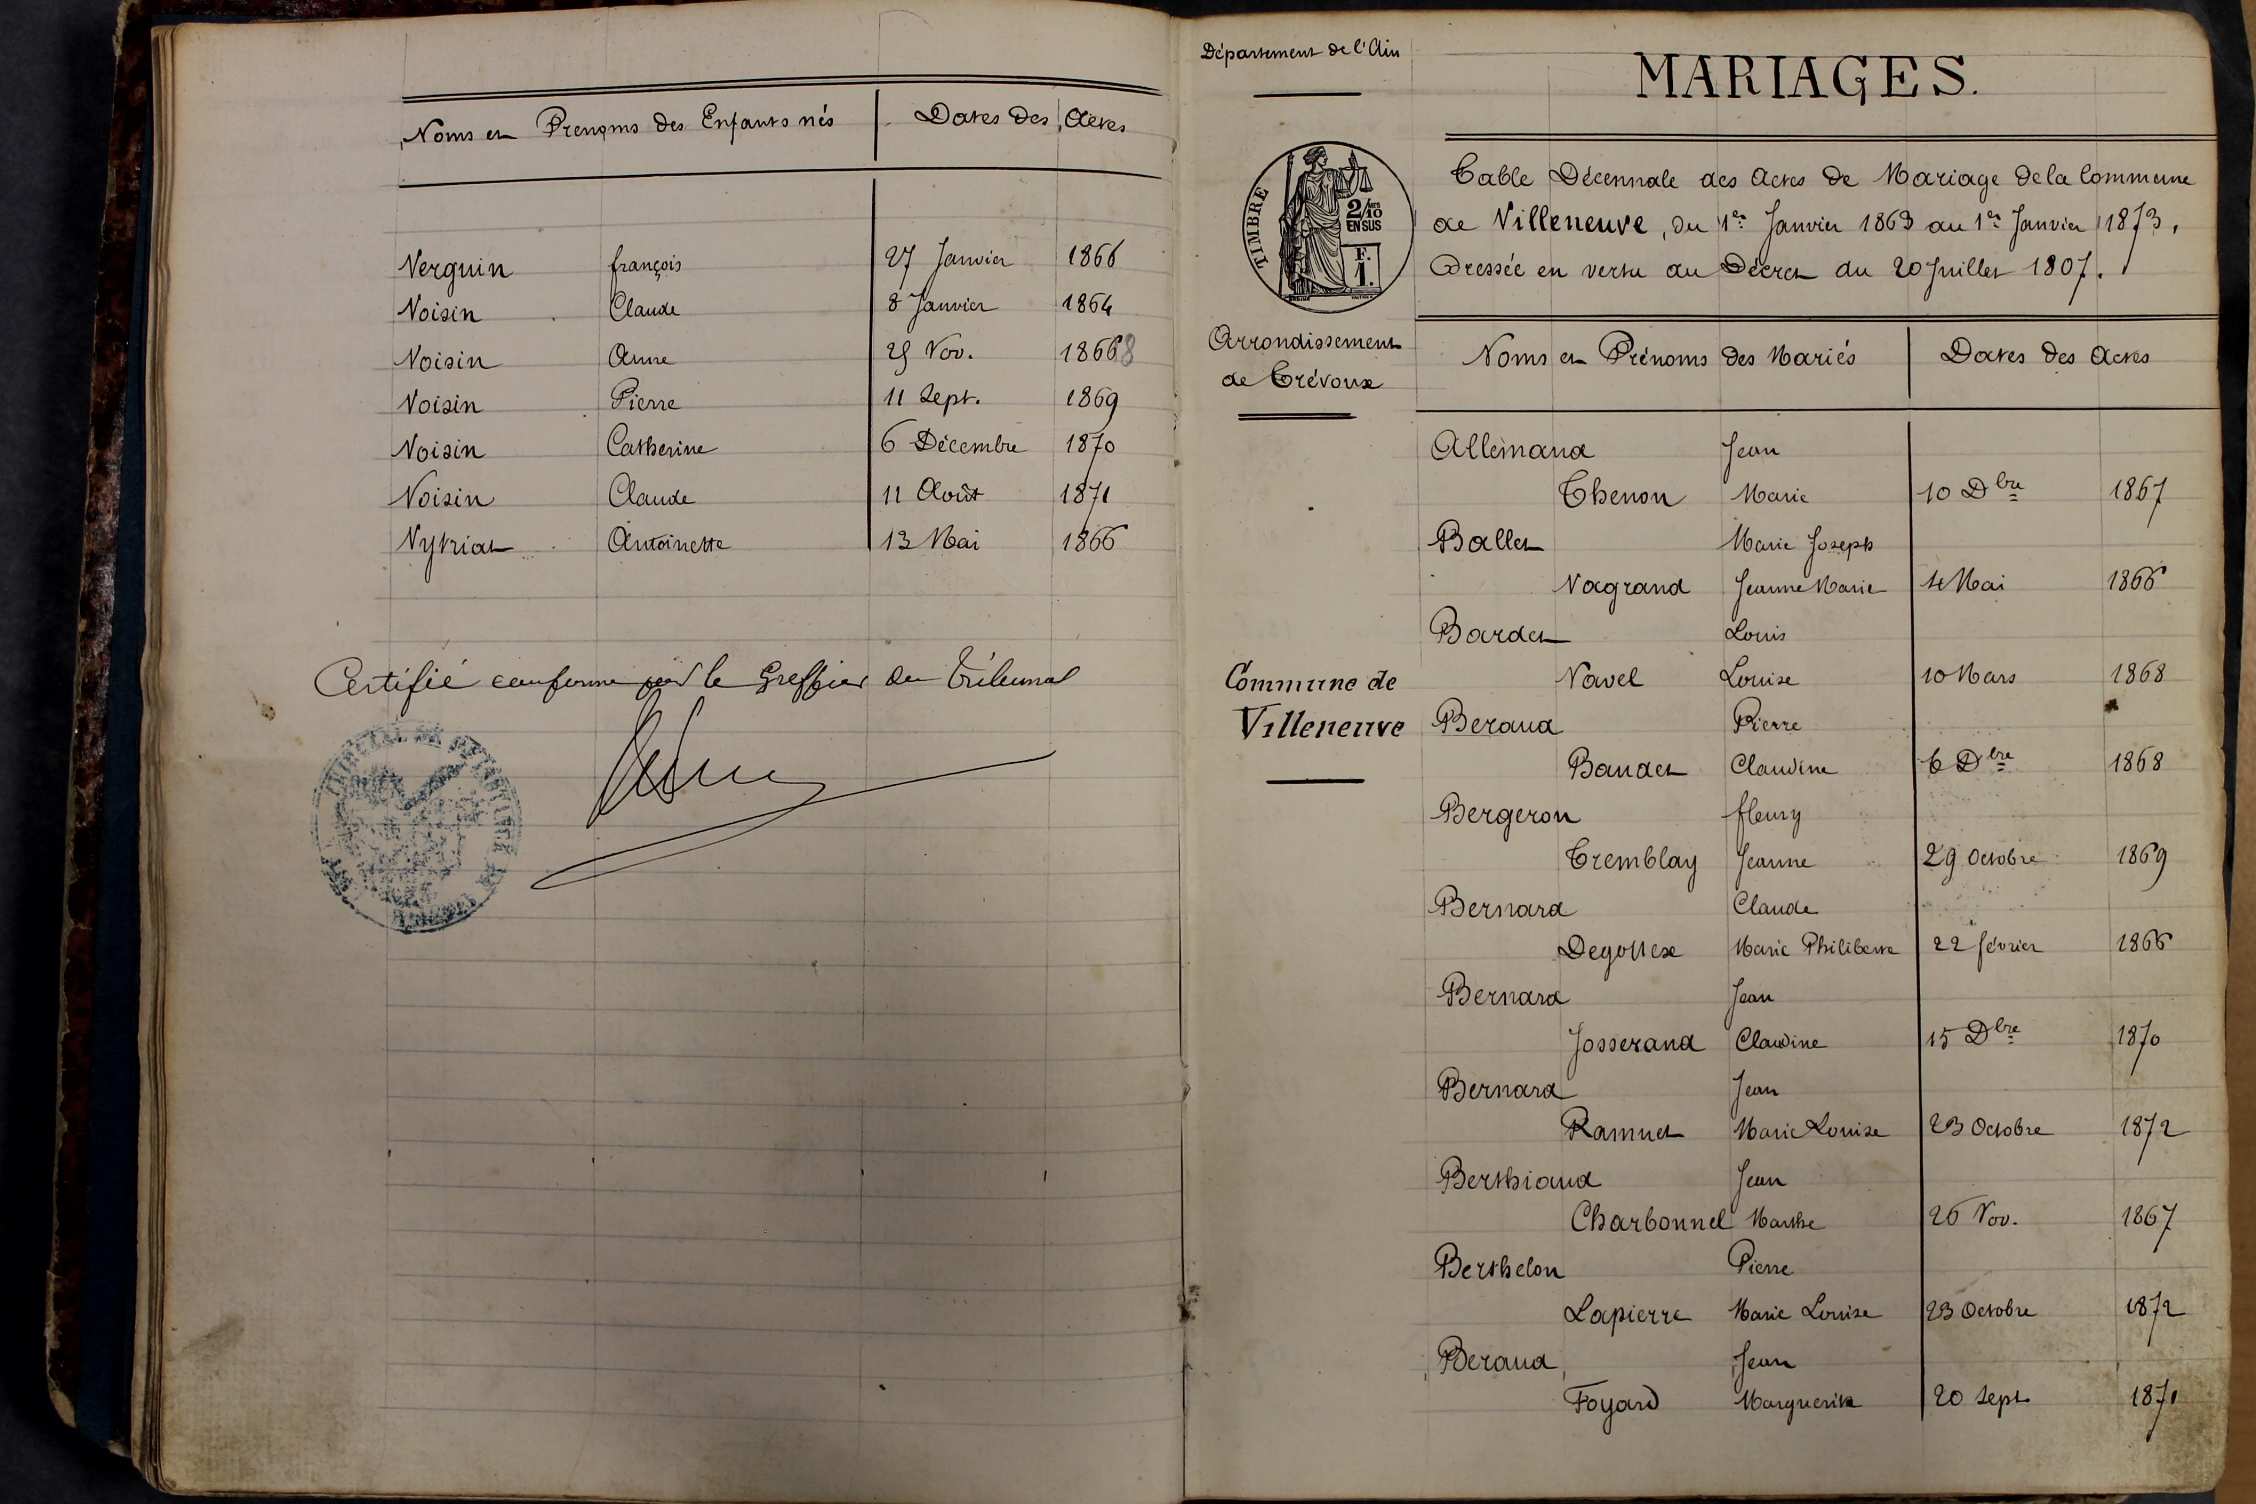 Noms et Prénoms des Enfants nés Dates des Actes
Verguin françois 27 Janvier 1866
Voisin Claude 8 Janvier 1864
Voisin Anne 25 Nov. 18668
Voisin Pierre 11 Sept. 1869
Voisin Catherine 6 Décembre 1870
Voisin Claude 11 Août 1871
Vytriat Antoinette 13 Mai 1866
Certifié conforme par le Greffier du Tribunal
Département de l'Ain
TIMBRE
2/10
EN SUS
F.
1.
Arrondissement
de Trévoux
Commune de
Villeneuve
MARIAGES.
Table Décennale des Actes de Mariage de la Commune
de Villeneuve, du 1er Janvier 1863 au 1er Janvier 1873,
Dressée en vertu du Décret du 20 Juillet 1807.
Noms et Prénoms des Mariés Dates des Actes
Allemand Jean
Thenon Marie 10 Dbre 1867
Ballet Marie Joseph
Vagrand Jeanne Marie 4 Mai 1866
Bardet Louis
Navel Louise 10 Mars 1868
Beraud Pierre
Baudet Claudine 6 Dbre 1868
Bergeron fleury
Tremblay Jeanne 29 Octobre 1869
Bernard Claude
Degottex Marie Philiberte 22 février 1866
Bernard Jean
Josserand Claudine 15 Dbre 1870
Bernard Jean
Ramuet Marie Louise 23 Octobre 1872
Berthiaud Jean
Charbonnel Marthe 26 Nov. 1867
Berthelon Pierre
Lapierre Marie Louise 23 Octobre 1872
Beraud Jean
Foyard Marguerite 20 Sept 1871